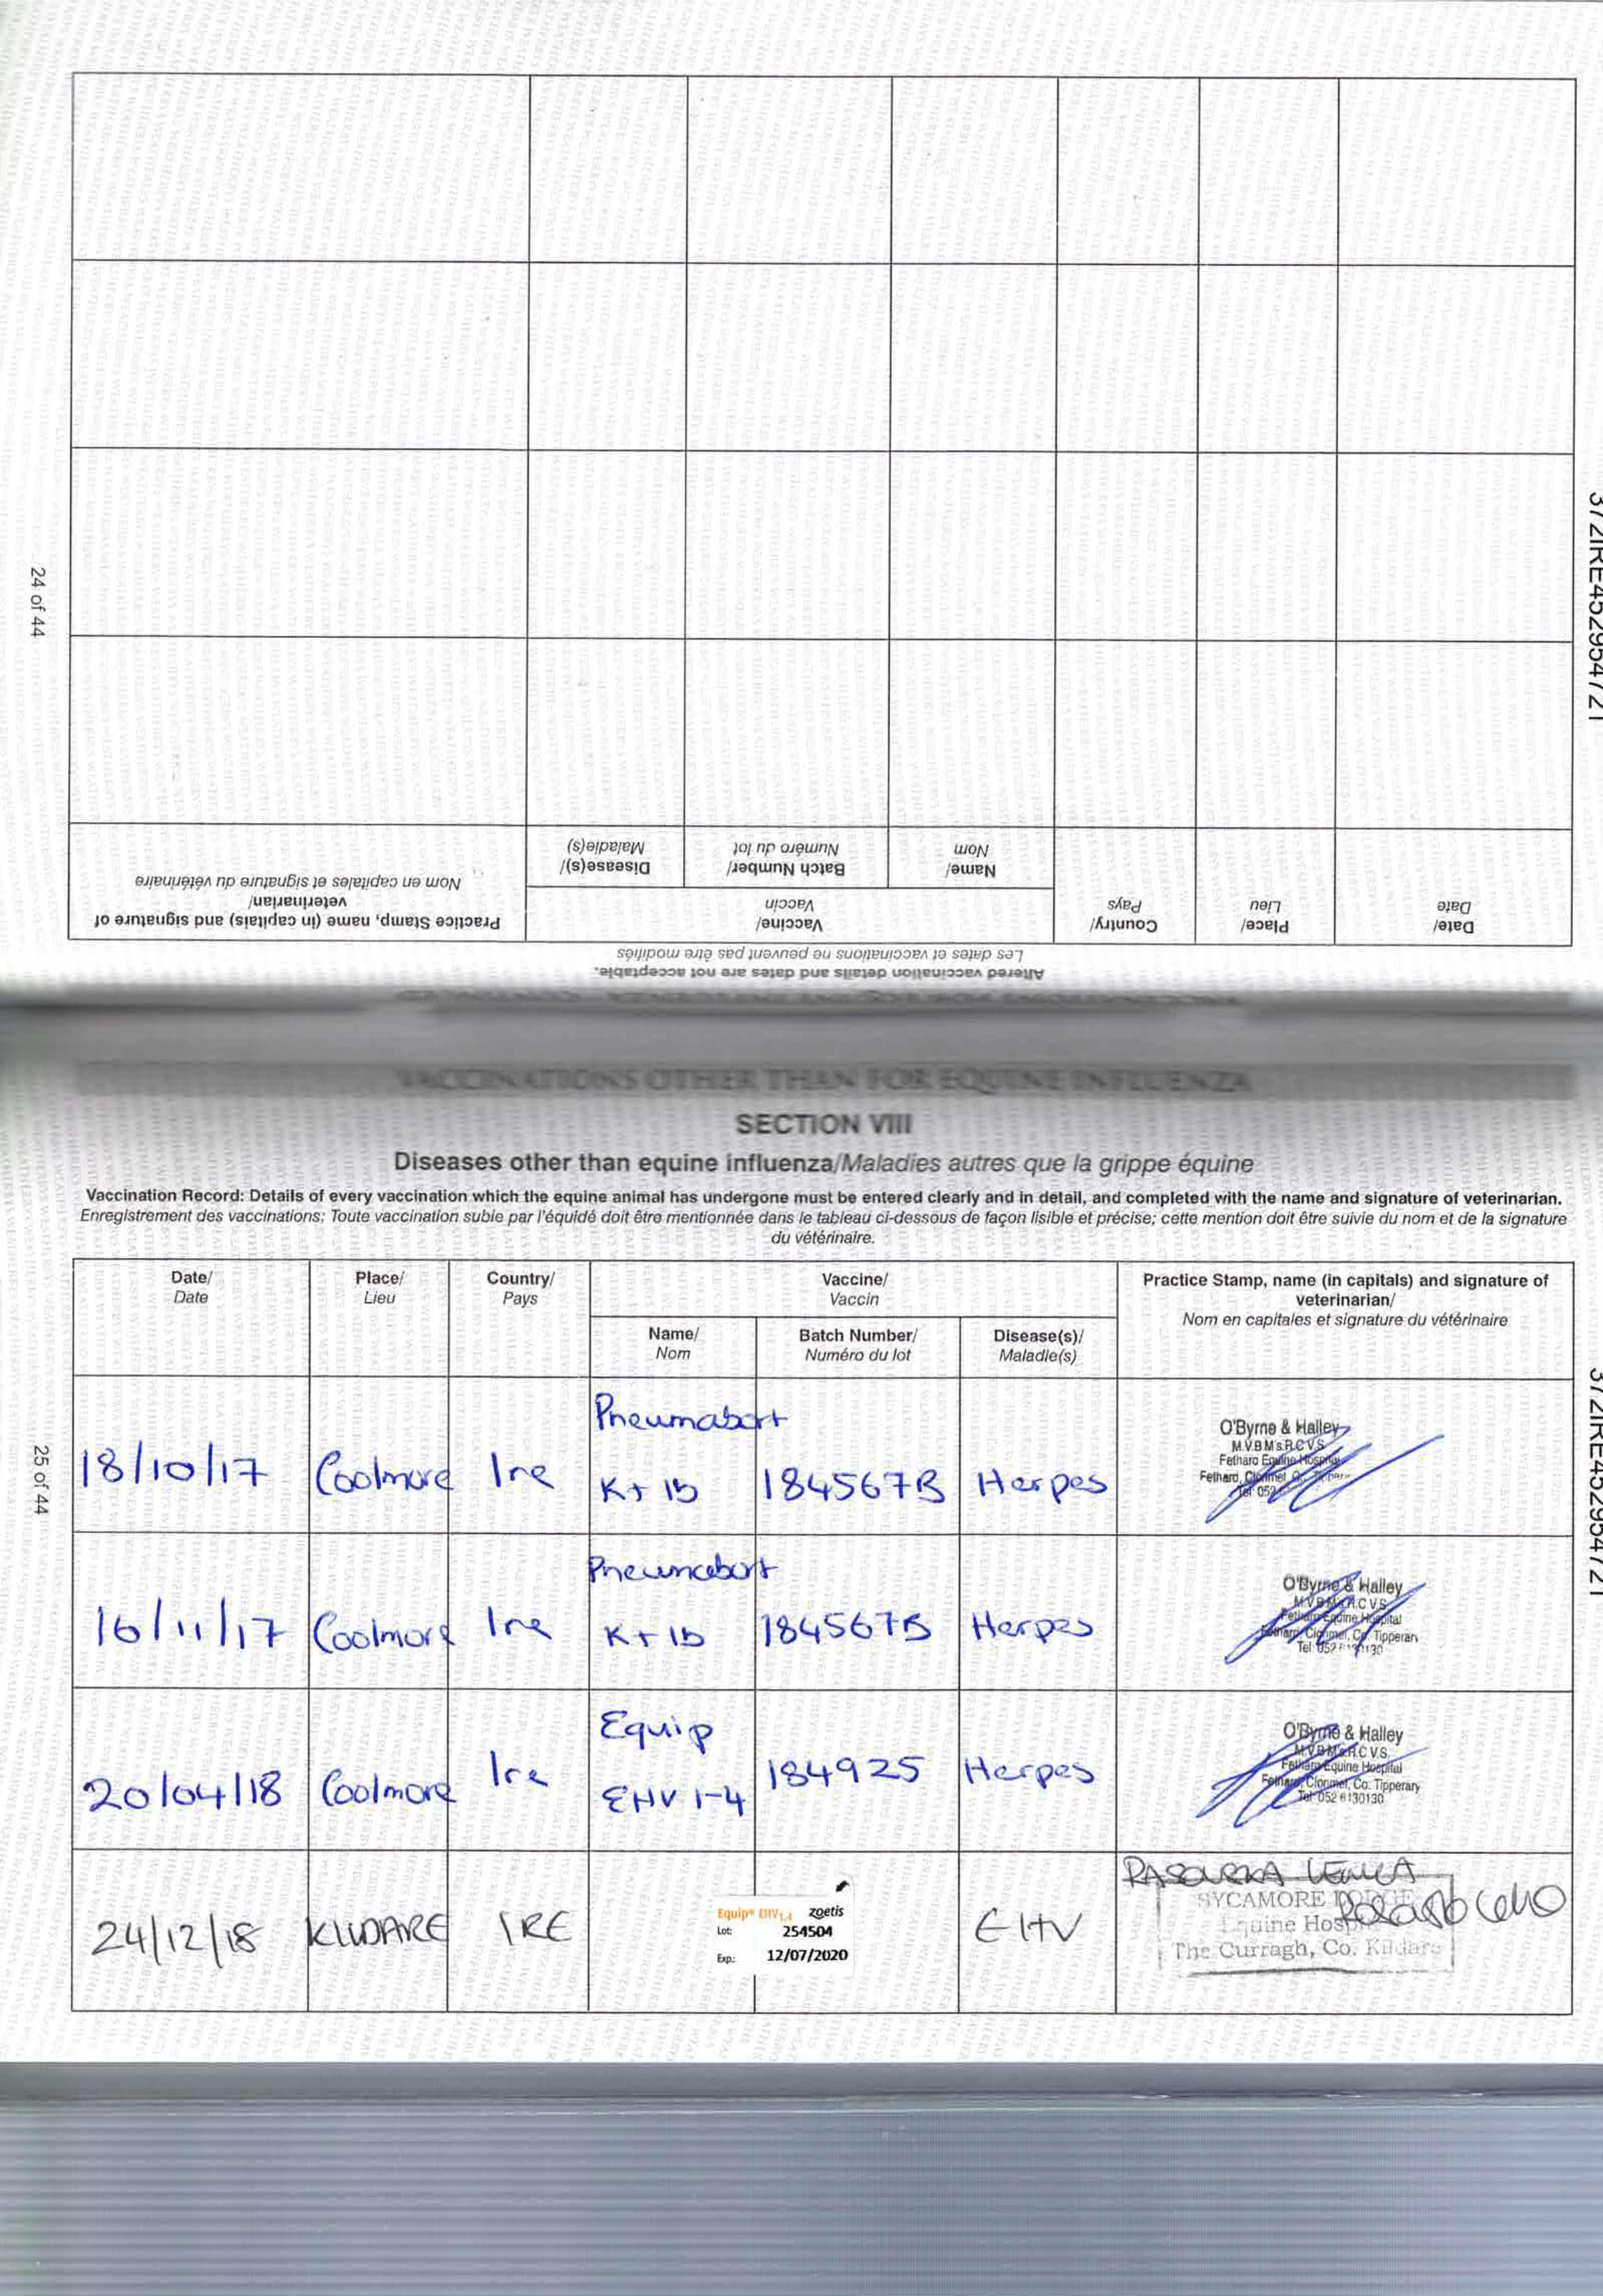 Practice Stamp, name (in capitals) and signature of
veterinarian/
Nom en capitales et signature du vétérinaire
Disease(s)/
Maladie(s)
Batch Number/
Numéro du lot
Name/
Nom
Vaccine/
Vaccin
Country/
Pays
Place/
Lieu
Date/
Date
Les dates et vaccinations ne peuvent pas être modifiés
Altered vaccination details and dates are not acceptable.
24 of 44
VACCINATIONS OTHER THAN FOR EQUINE INFLUENZA
SECTION VIII
Diseases other than equine influenza/Maladies autres que la grippe équine
Vaccination Record: Details of every vaccination which the equine animal has undergone must be entered clearly and in detail, and completed with the name and signature of veterinarian.
Enregistrement des vaccinations: Toute vaccination subie par l'équidé doit être mentionnée dans le tableau ci-dessous de façon lisible et précise; cette mention doit être suivie du nom et de la signature
du vétérinaire.
Date/
Date
Place/
Lieu
Country/
Pays
Vaccine/
Vaccin
Name/
Nom
Batch Number/
Numéro du lot
Disease(s)/
Maladie(s)
Practice Stamp, name (in capitals) and signature of
veterinarian/
Nom en capitales et signature du vétérinaire
18/10/17 Coolmore Ire Pneumabort
K+1b 184567B Herpes
O'Byrne & Halley
M.V.B M's.R.C.V.S
Fethard Equine Hospital
Fethard, Clonmel
16/11/17 Coolmore Ire Pneumabort
K+1b 184567B Herpes
O'Byrne & Halley
M.V.B M's.R.C.V.S
Fethard Equine Hospital
Fethard, Clonmel, Co. Tipperary
20/04/18 Coolmore Ire Equip
EHV 1-4 184925 Herpes
O'Byrne & Halley
M.V.B M's.R.C.V.S.
Fethard Equine Hospital
Fethard, Clonmel, Co. Tipperary
Tel: 052 6130130
24/12/18 KILDARE IRE
Equip® EHV1,4 zoetis
Lot: 254504
Exp.: 12/07/2020
EHV
SYCAMORE LODGE
Equine Hospital
The Curragh, Co. Kildare
25 of 44